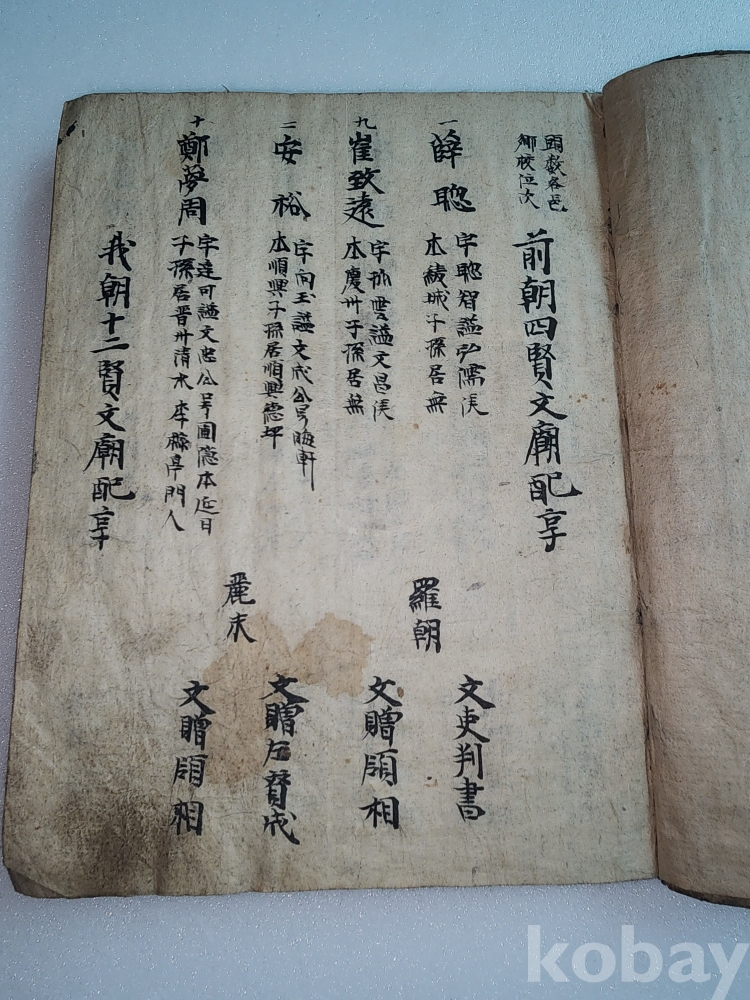 頭數各邑
鄉校位次
前朝四賢文廟配享
一
薛聰
字聰智諡弘濡侯
本綾城子孫居無
羅朝
文吏判書
九
崔致遠
字孤雲諡文昌侯
本慶州子孫居無
文贈領相
二
安裕
字向玉諡文成公号晦軒
本順興子孫居順興德坪
麗末
文贈左贊成
十
鄭夢周
字達可諡文忠公号圃隱本延日
子孫居晋州清水 李 亭門人
文贈領相
我朝十二賢文廟配享
kobay